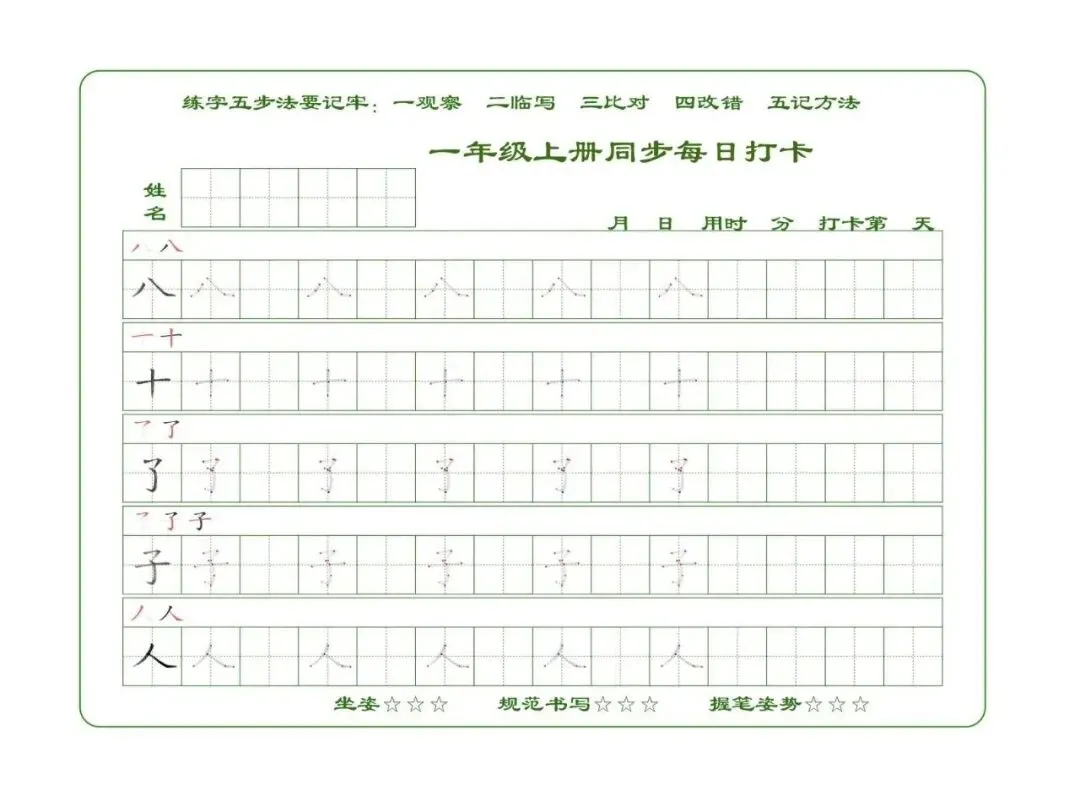 练字五步法要记牢：一观察 二临写 三比对 四改错 五记方法
一年级上册同步每日打卡
姓名
月 日 用时 分 打卡第 天
八 八
八 八 八 八 八 八
一 十
十 十 十 十 十 十
乛 了
了 了 了 了 了 了
乛 了 子
子 子 子 子 子 子
丿 人
人 人 人 人 人 人
坐姿☆☆☆ 规范书写☆☆☆ 握笔姿势☆☆☆